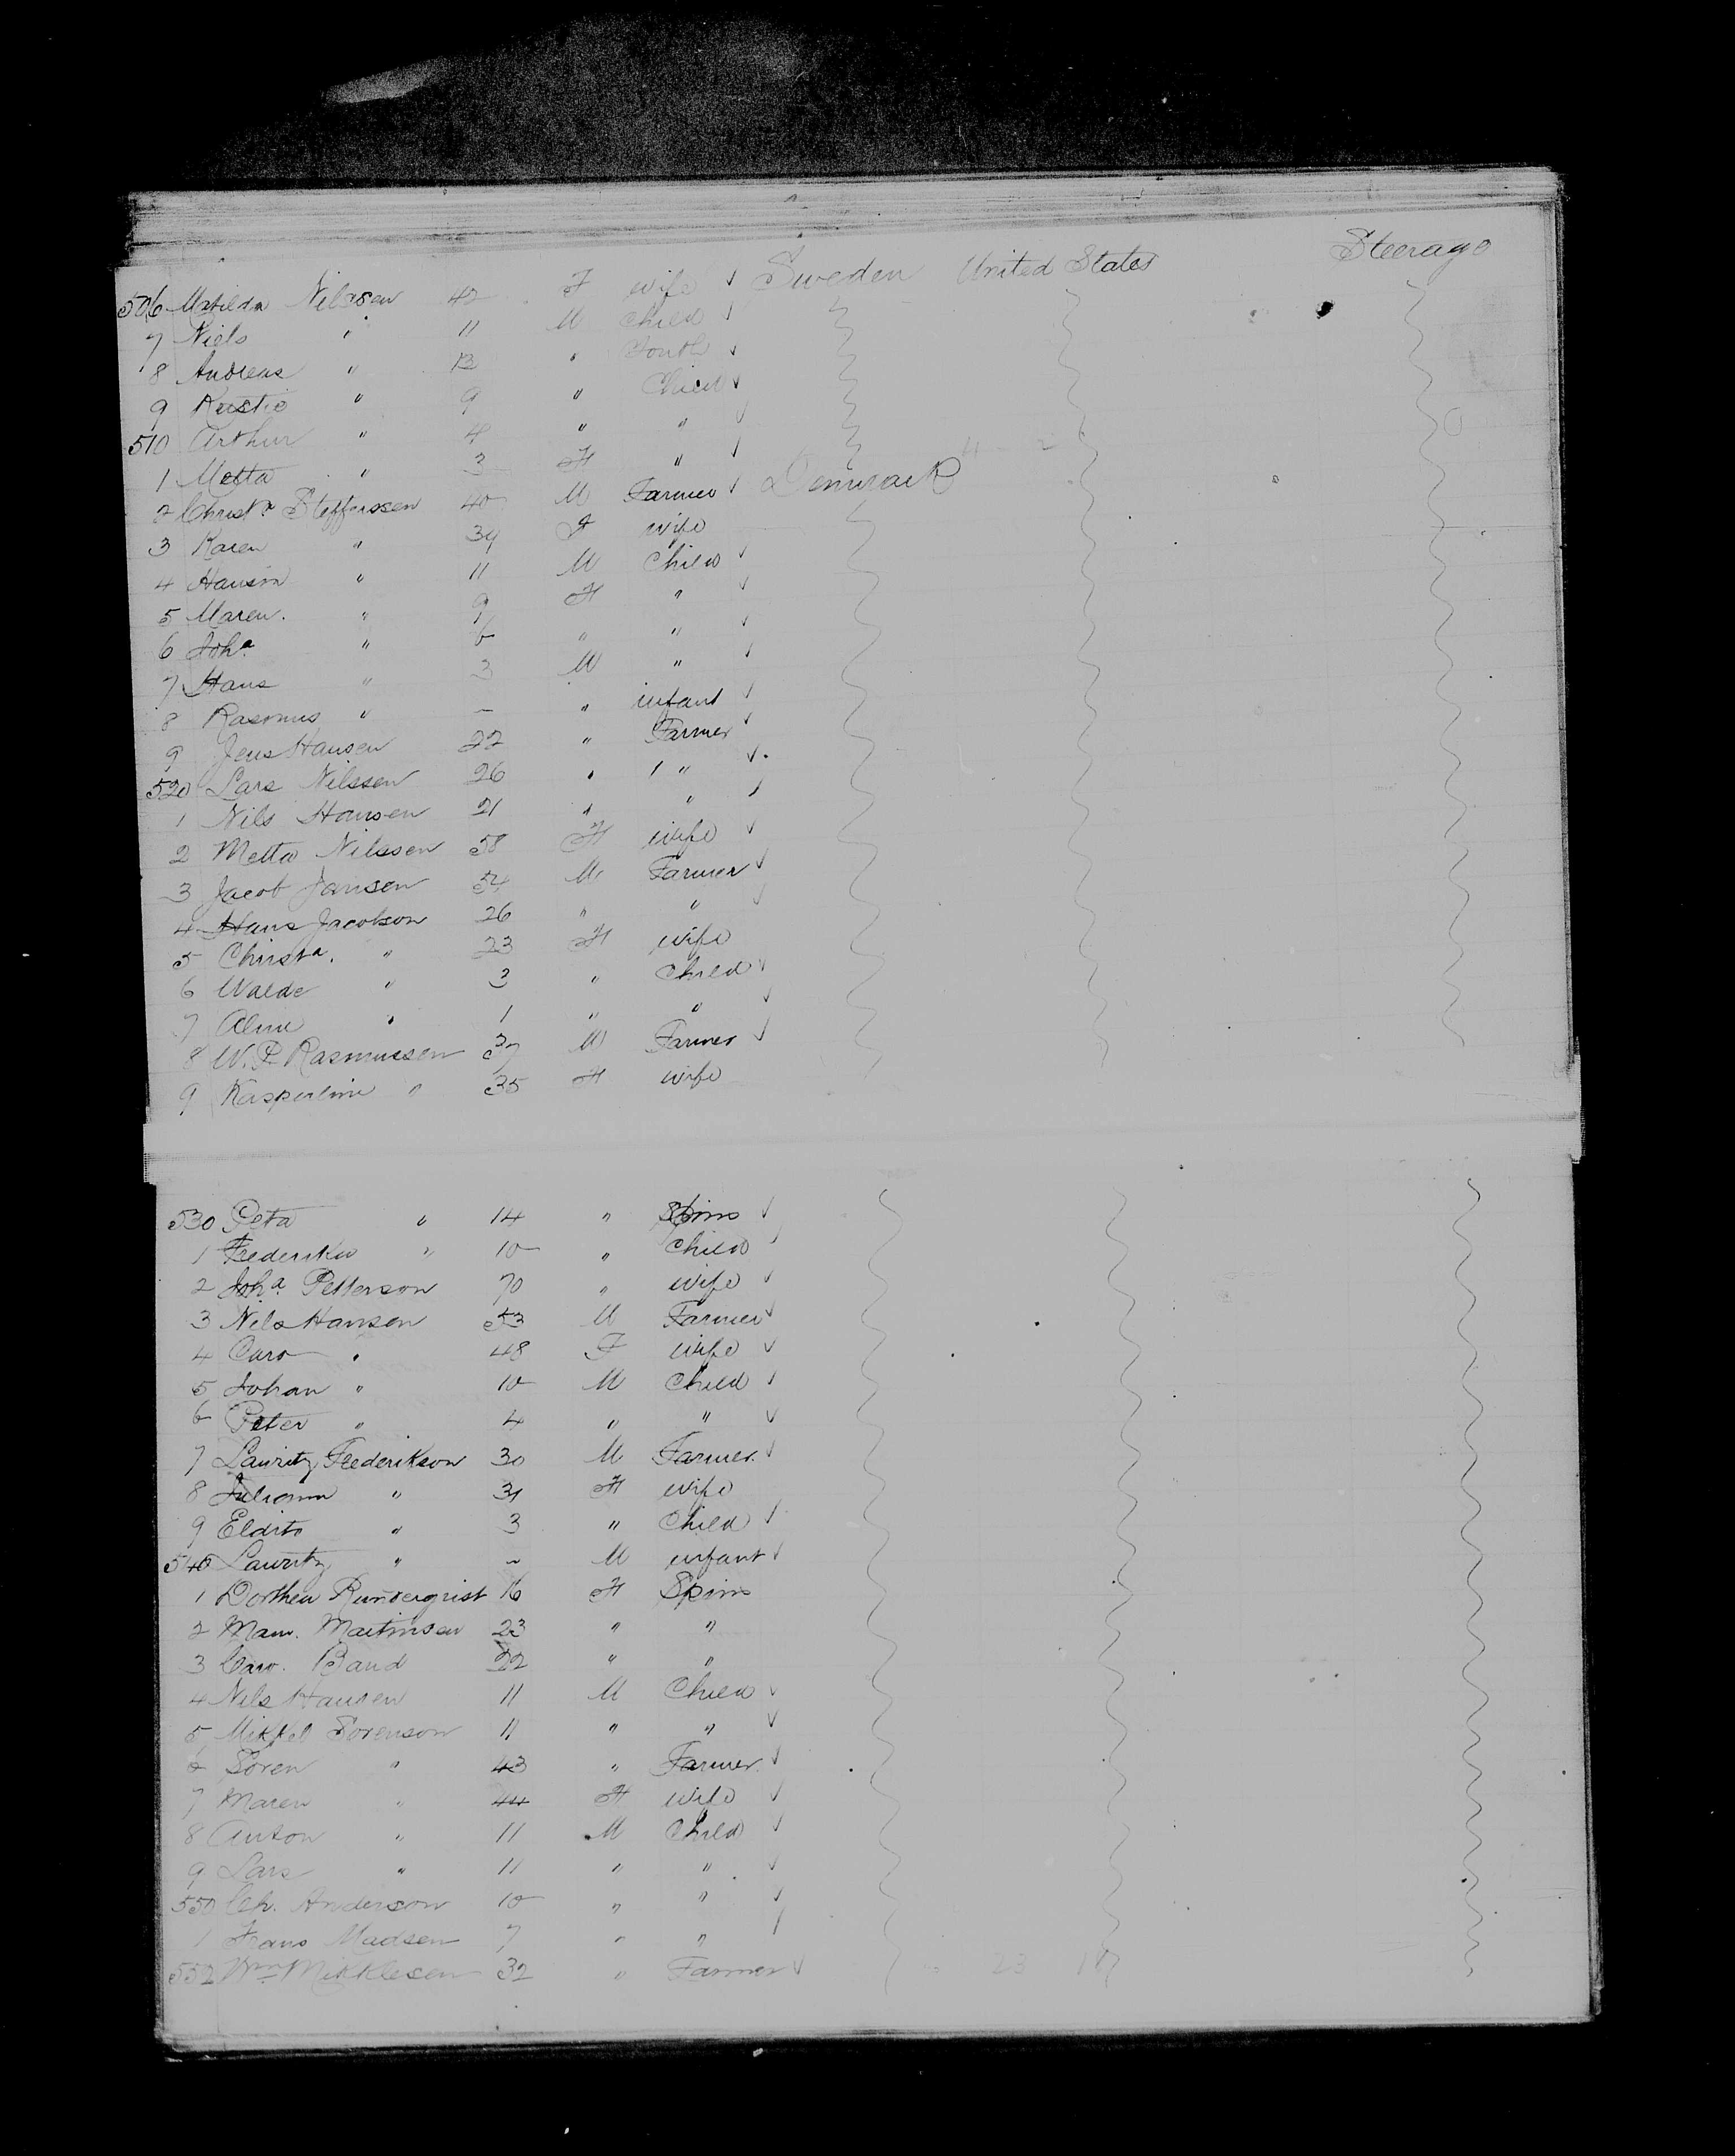 506 Matilda Nilssen 42 F wife √ Sweden United States Steerage
7 Niels " 11 M Child √
8 Andreas " 13 " Youth √
9 " 9 " Child √
510 Arthur " 4 " " √
1 Metta " 3 F " √
2 Christn Steffenssen 40 M Farmer √ Denmark
3 Karen " 34 F wife
4 " 11 M Child √
5 Maren. " 9 F " √
6 Joha " 6 " " √
7 Hans " 3 M " √
8 Rasmus " - " infant √
9 Jens Hansen 22 " Farmer √
520 Lars Nilssen 26 " " √
1 Nils Hansen 21 " " √
2 Metta Nilssen 58 F wife √
3 Jacob Jansen 54 M Farmer √
4 Hans Jacobson 26 " " √
5 Christa. " 23 F wife
6 Walde " 3 " Child √
7 " 1 " " √
8 W. P. Rasmussen 37 M Farmer √
9 Kasperline " 35 F wife
530 Peta " 14 " Spins √
1 Frederike " 10 " Child √
2 Joha Petterson 70 " wife √
3 Nils Hansen 53 M Farmer √
4 Caro " 48 F wife √
5 Johan " 10 M Child √
6 Peter " 4 " " √
7 Lauritz Frederikson 30 M Farmer. √
8 Juliann " 31 F wife
9 " 3 " Child √
540 Lauritz " - M infant √
1 Dorthea 16 F Spins
2 Martinsen 23 " "
3 Caro. 22 " "
4 Nils Hansen 11 M Child √
5 Mikkel Sorenson 11 " " √
6 Soren " 43 " Farmer. √
7 Maren " 44 F wife √
8 Anton " 11 M Child √
9 Lars " 11 " " √
550 Ch. Anderson 10 " " √
1 Frans Madsen 7 " " √
552 Wm Mikklesen 32 " Farmer √